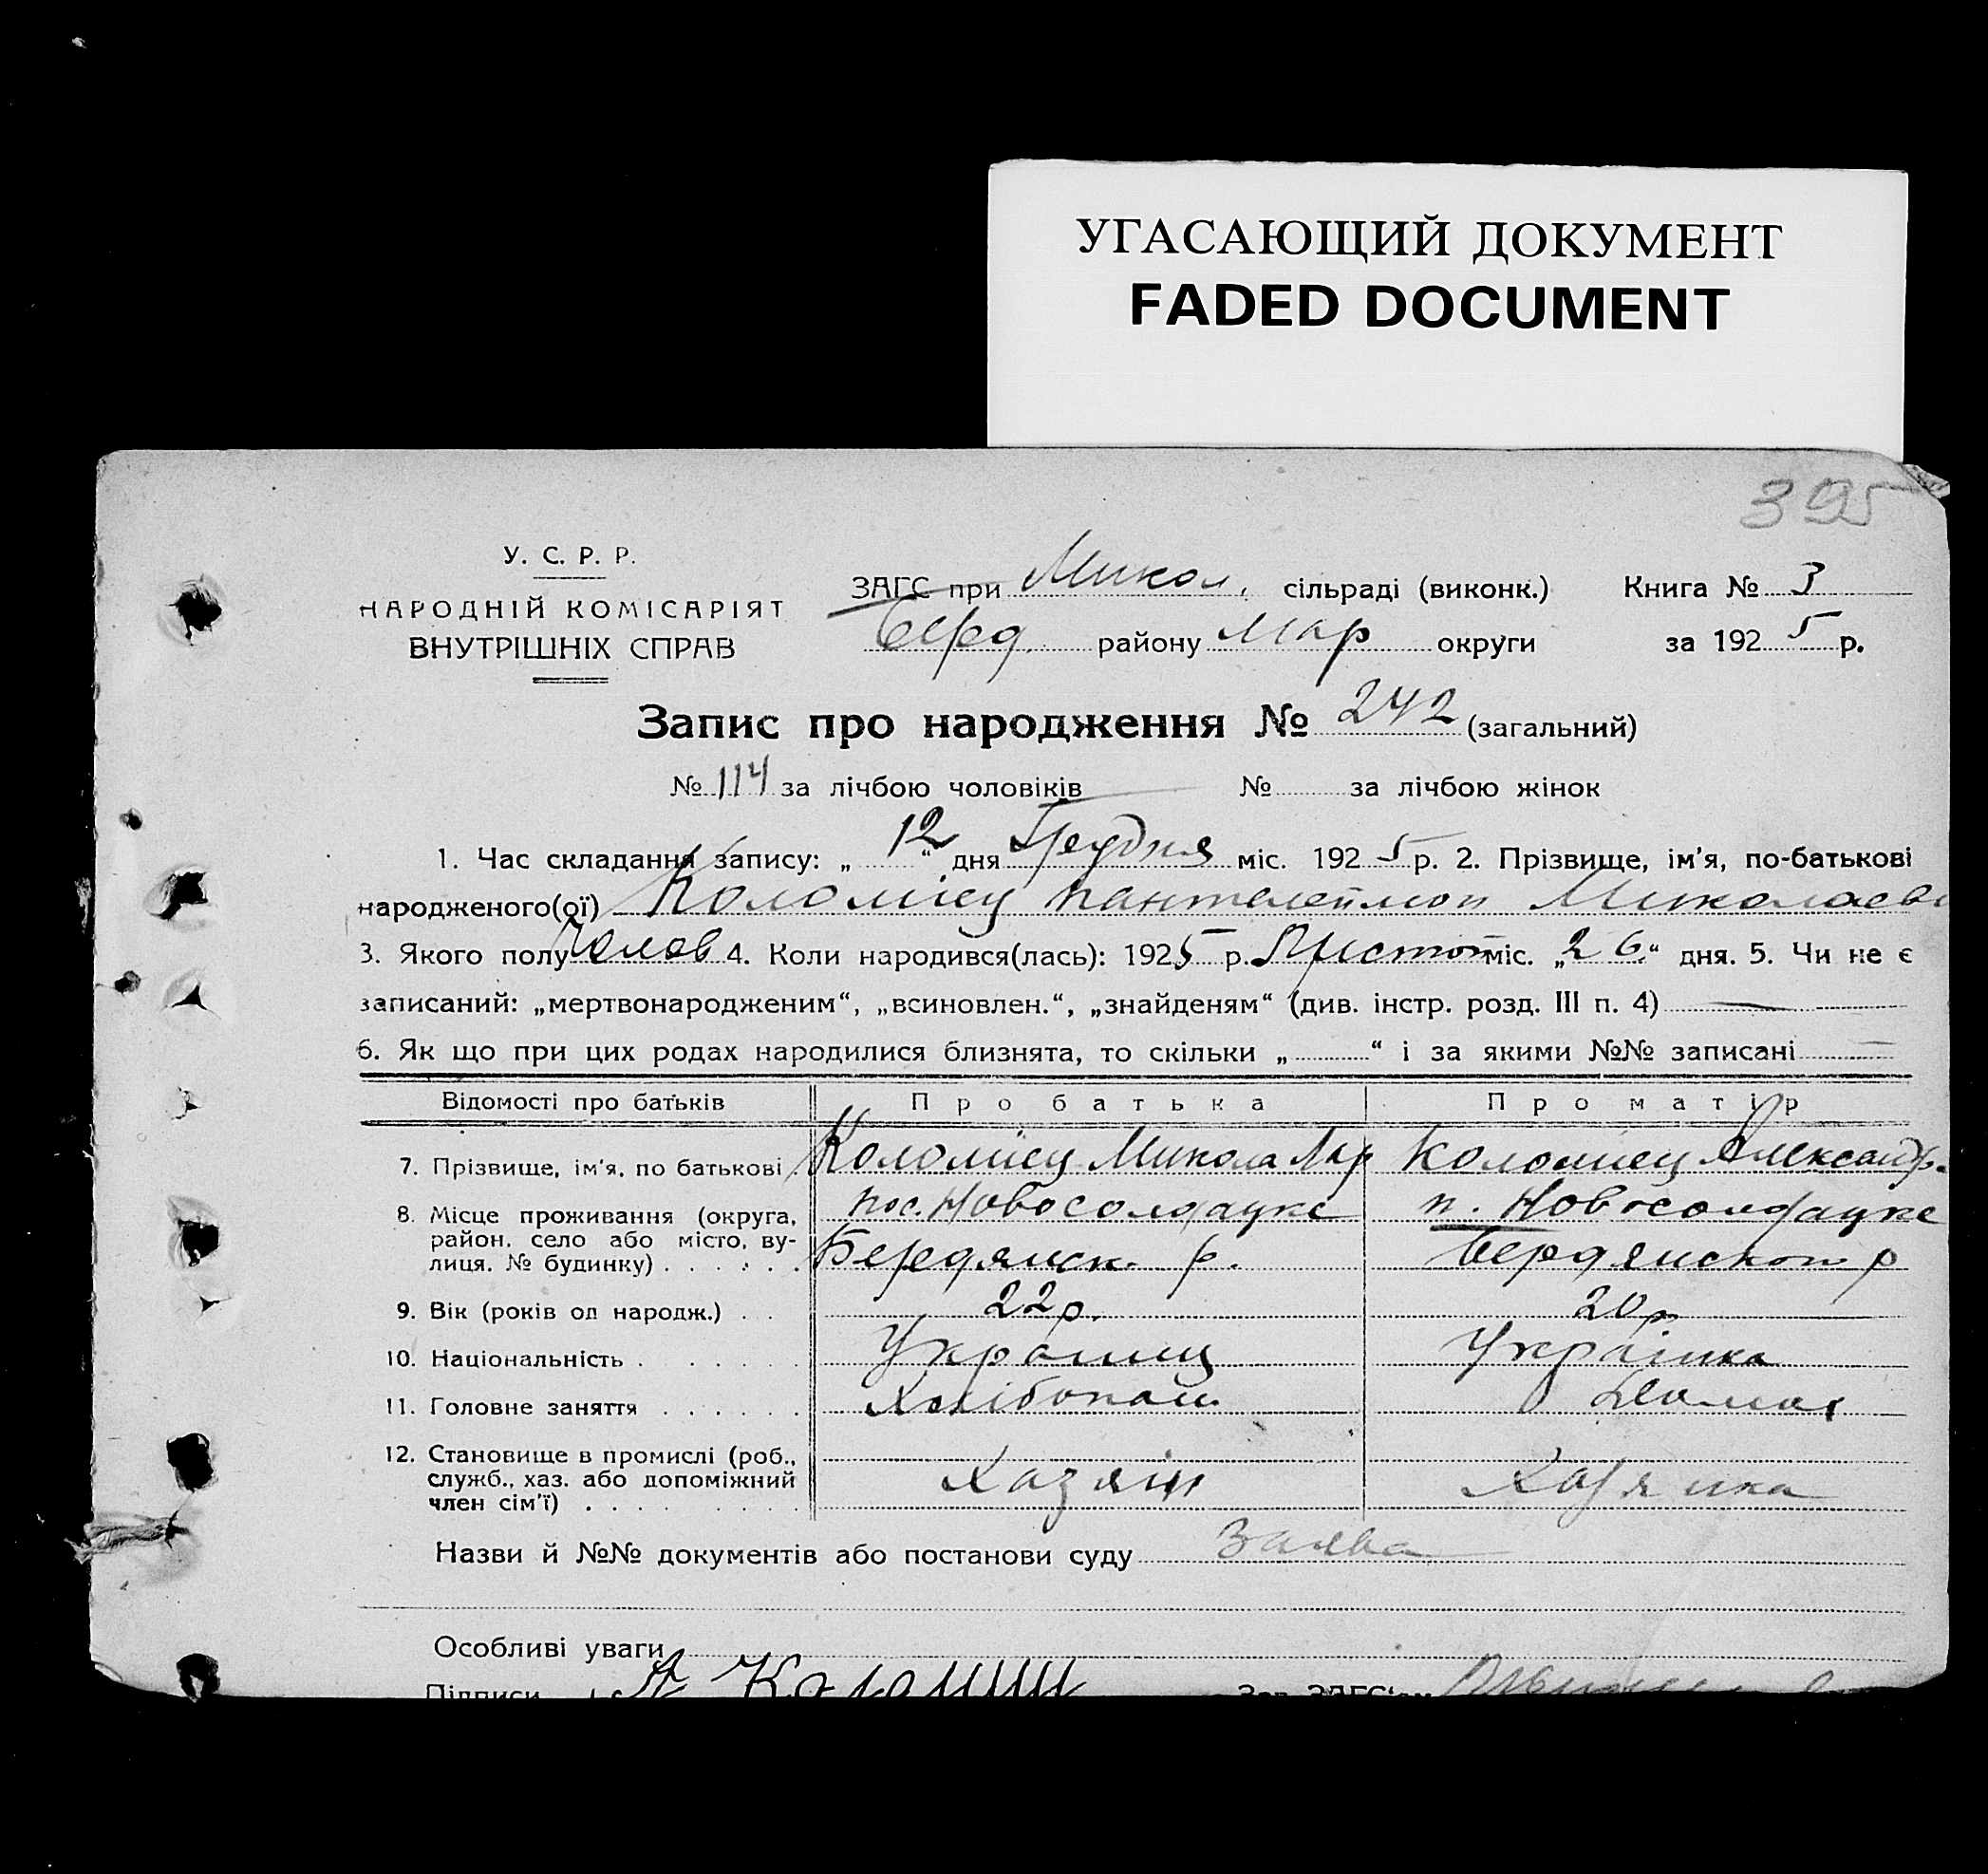 УГАСАЮЩИЙ ДОКУМЕНТ
FADED DOCUMENT
395
У. С. Р. Р.
НАРОДНІЙ КОМІСАРІЯТ
ВНУТРІШНІХ СПРАВ
ЗАГС при Микол. сільраді (виконк.)
Берд. району Мар округи
Книга № 3
за 1925 р.
Запис про народження № 242 (загальний)
№ 114 за лічбою чоловіків № за лічбою жінок
1. Час складання запису: „ 12 “ дня Грудня міс. 1925 р. 2. Прізвище, ім'я, по-батькові
народженого(ої) Коломієц Пантелеймон Миколаев
3. Якого полу Чолов 4. Коли народився(лась): 1925 р. міс. „26“ дня. 5. Чи не є
записаний: „мертвонародженим“, „всиновлен.“, „знайденям“ (див. інстр. розд. III п. 4)
6. Як що при цих родах народилися близнята, то скільки „ “ і за якими №№ записані
Відомості про батьків Про батька Про матір
7. Прізвище, ім'я, по батькові Коломієц Микола Мар Коломієц Александр.
8. Місце проживання (округа, район, село або місто, вулиця, № будинку) пос. Новосолдацке п. Новосолдацке
Бердянск. р. Бердянского р
9. Вік (років од народж.) 22 р. 20 р
10. Національність Українец Українка
11. Головне заняття Хлібопаш. Домаш
12. Становище в промислі (роб., служб., хаз. або допоміжний член сім'ї) Хазяін Хазяйка
Назви й №№ документів або постанови суду Заява
Особливі уваги
Підписи
Зав. ЗАГС'ом